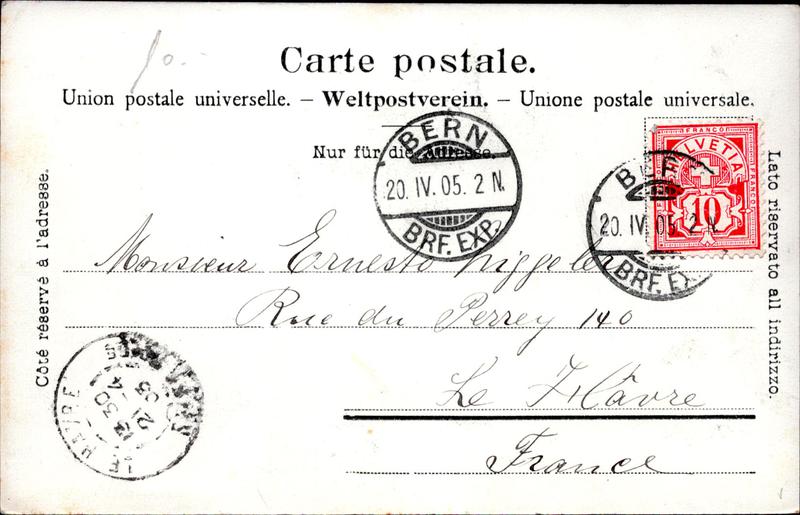 Carte postale.
Union postale universelle. – Weltpostverein. – Unione postale universale.
Nur für die Adresse.
Côté réservé à l'adresse.
Lato riservato all indirizzo.
BERN
20. IV. 05. 2 N.
BRF. EXP.
FRANCO
HELVETIA
FRANCO
10
20. IV. 05 2 N.
BRF. EX
Monsieur Ernesto Niggeler
Rue du Perrey 140
Le Hâvre
France
LE HAVRE
30
21 - 4
05